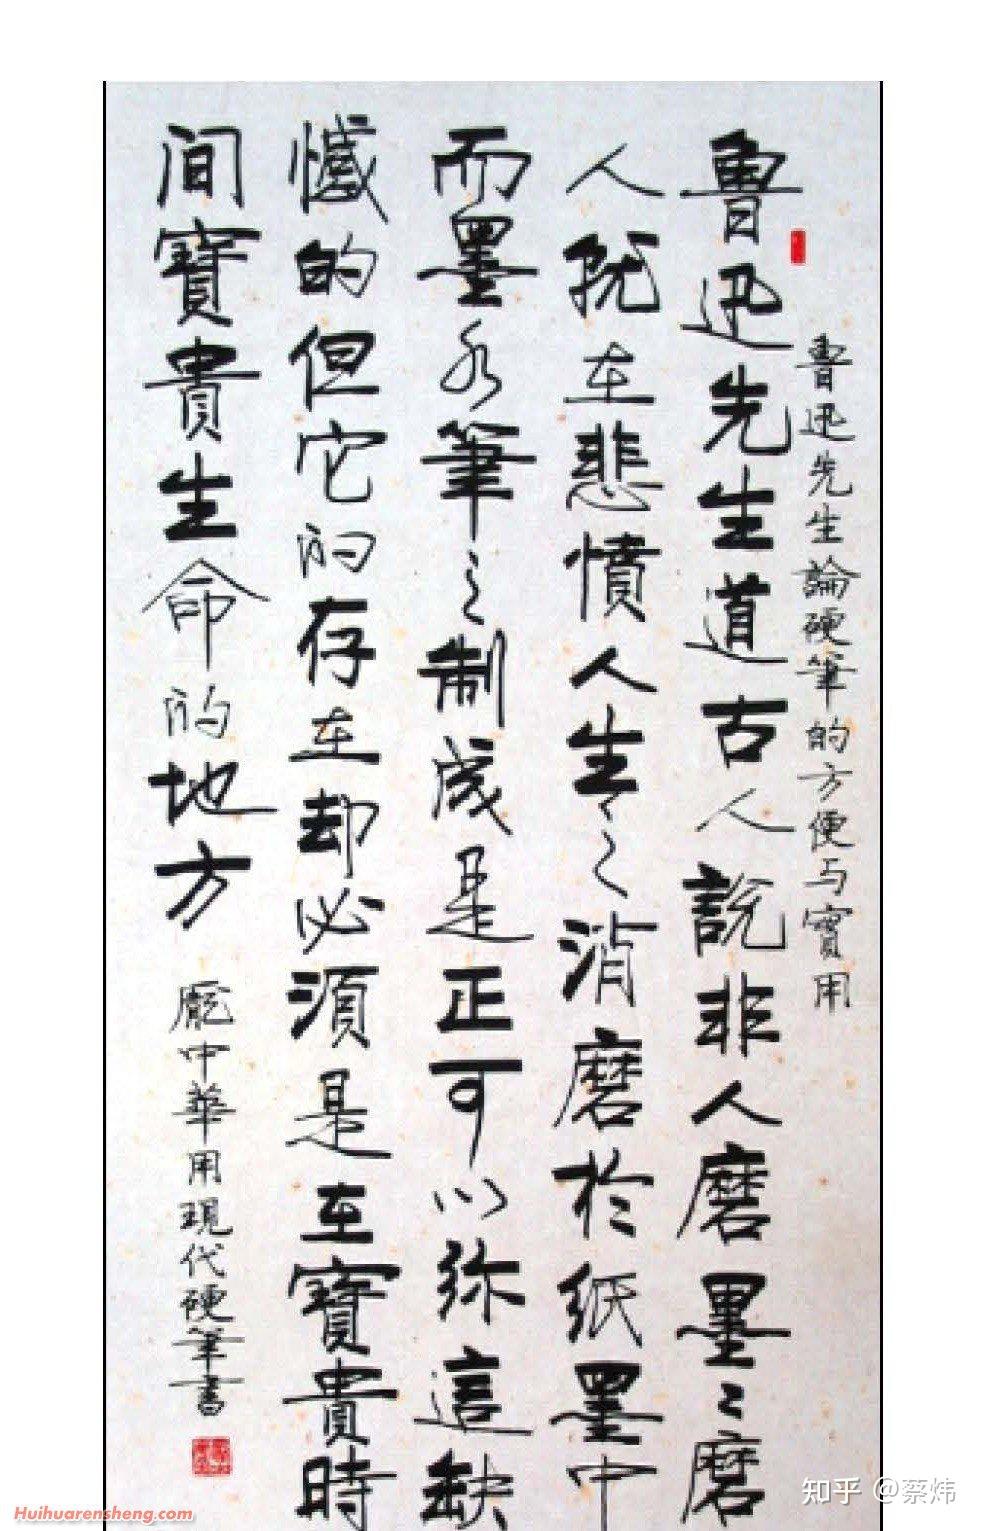 魯迅先生論硬筆的方便与實用
魯迅先生道古人說非人磨墨墨磨
人既在悲憤人生之消磨於纸墨中
而墨水筆之制成是正可以弥這缺
憾的但它的存在却必須是在寶貴時
间寶貴生命的地方
龐中華用現代硬筆書
知乎 @蔡炜
Huihuarensheng.com